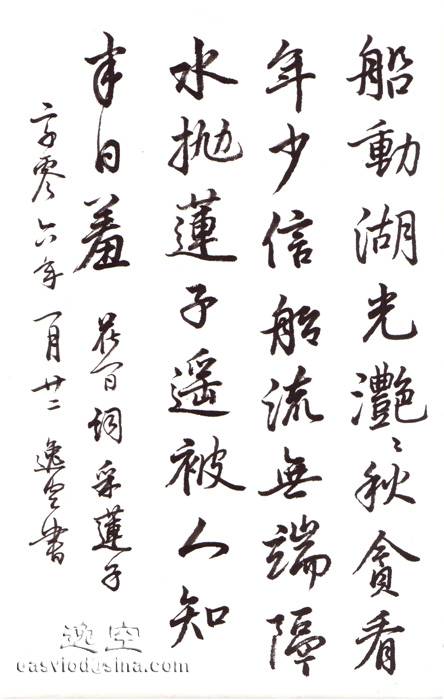 船動湖光灧〻秋貪看
年少信船流無端隔
水抛蓮子遥被人知
半日羞 花间詞 采蓮子
二千零六年 一月廿二 逸空書
逸空
easyiod@sina.com